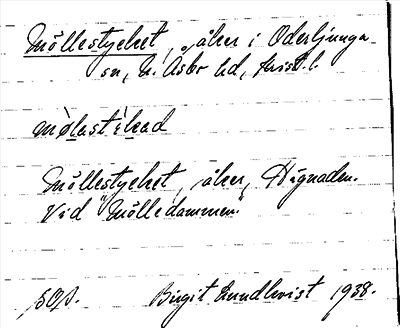 Möllestycket, åker i Oderljunga
sn, N. Åsbo hd, Krist. l.
mølastỳkad
Möllestycket, åker, Hägnaden.
Vid "Mölledammen."
Birgit Lundkvist 1938.